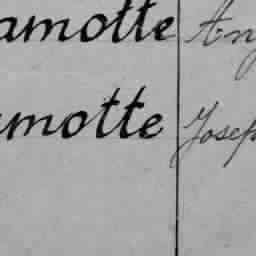 amotte An
amotte Josep